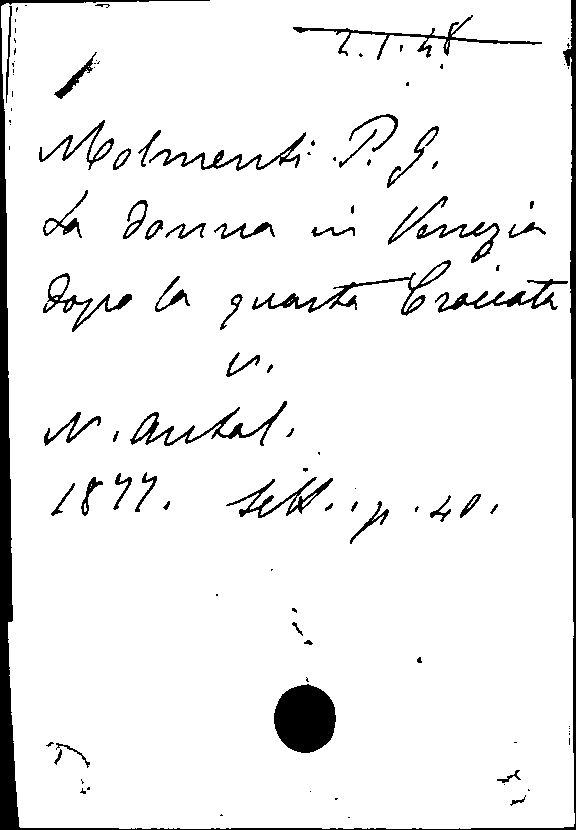 2.1.48
Molmenti P. G.
La donna in Venezia
dopo la quarta Crociata
v.
N. Antol.
1877. Sett. p. 40.